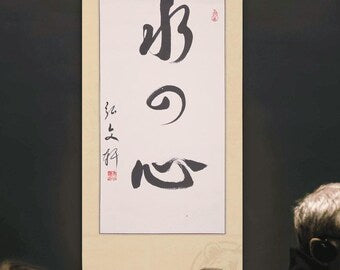 水の心
弘文軒